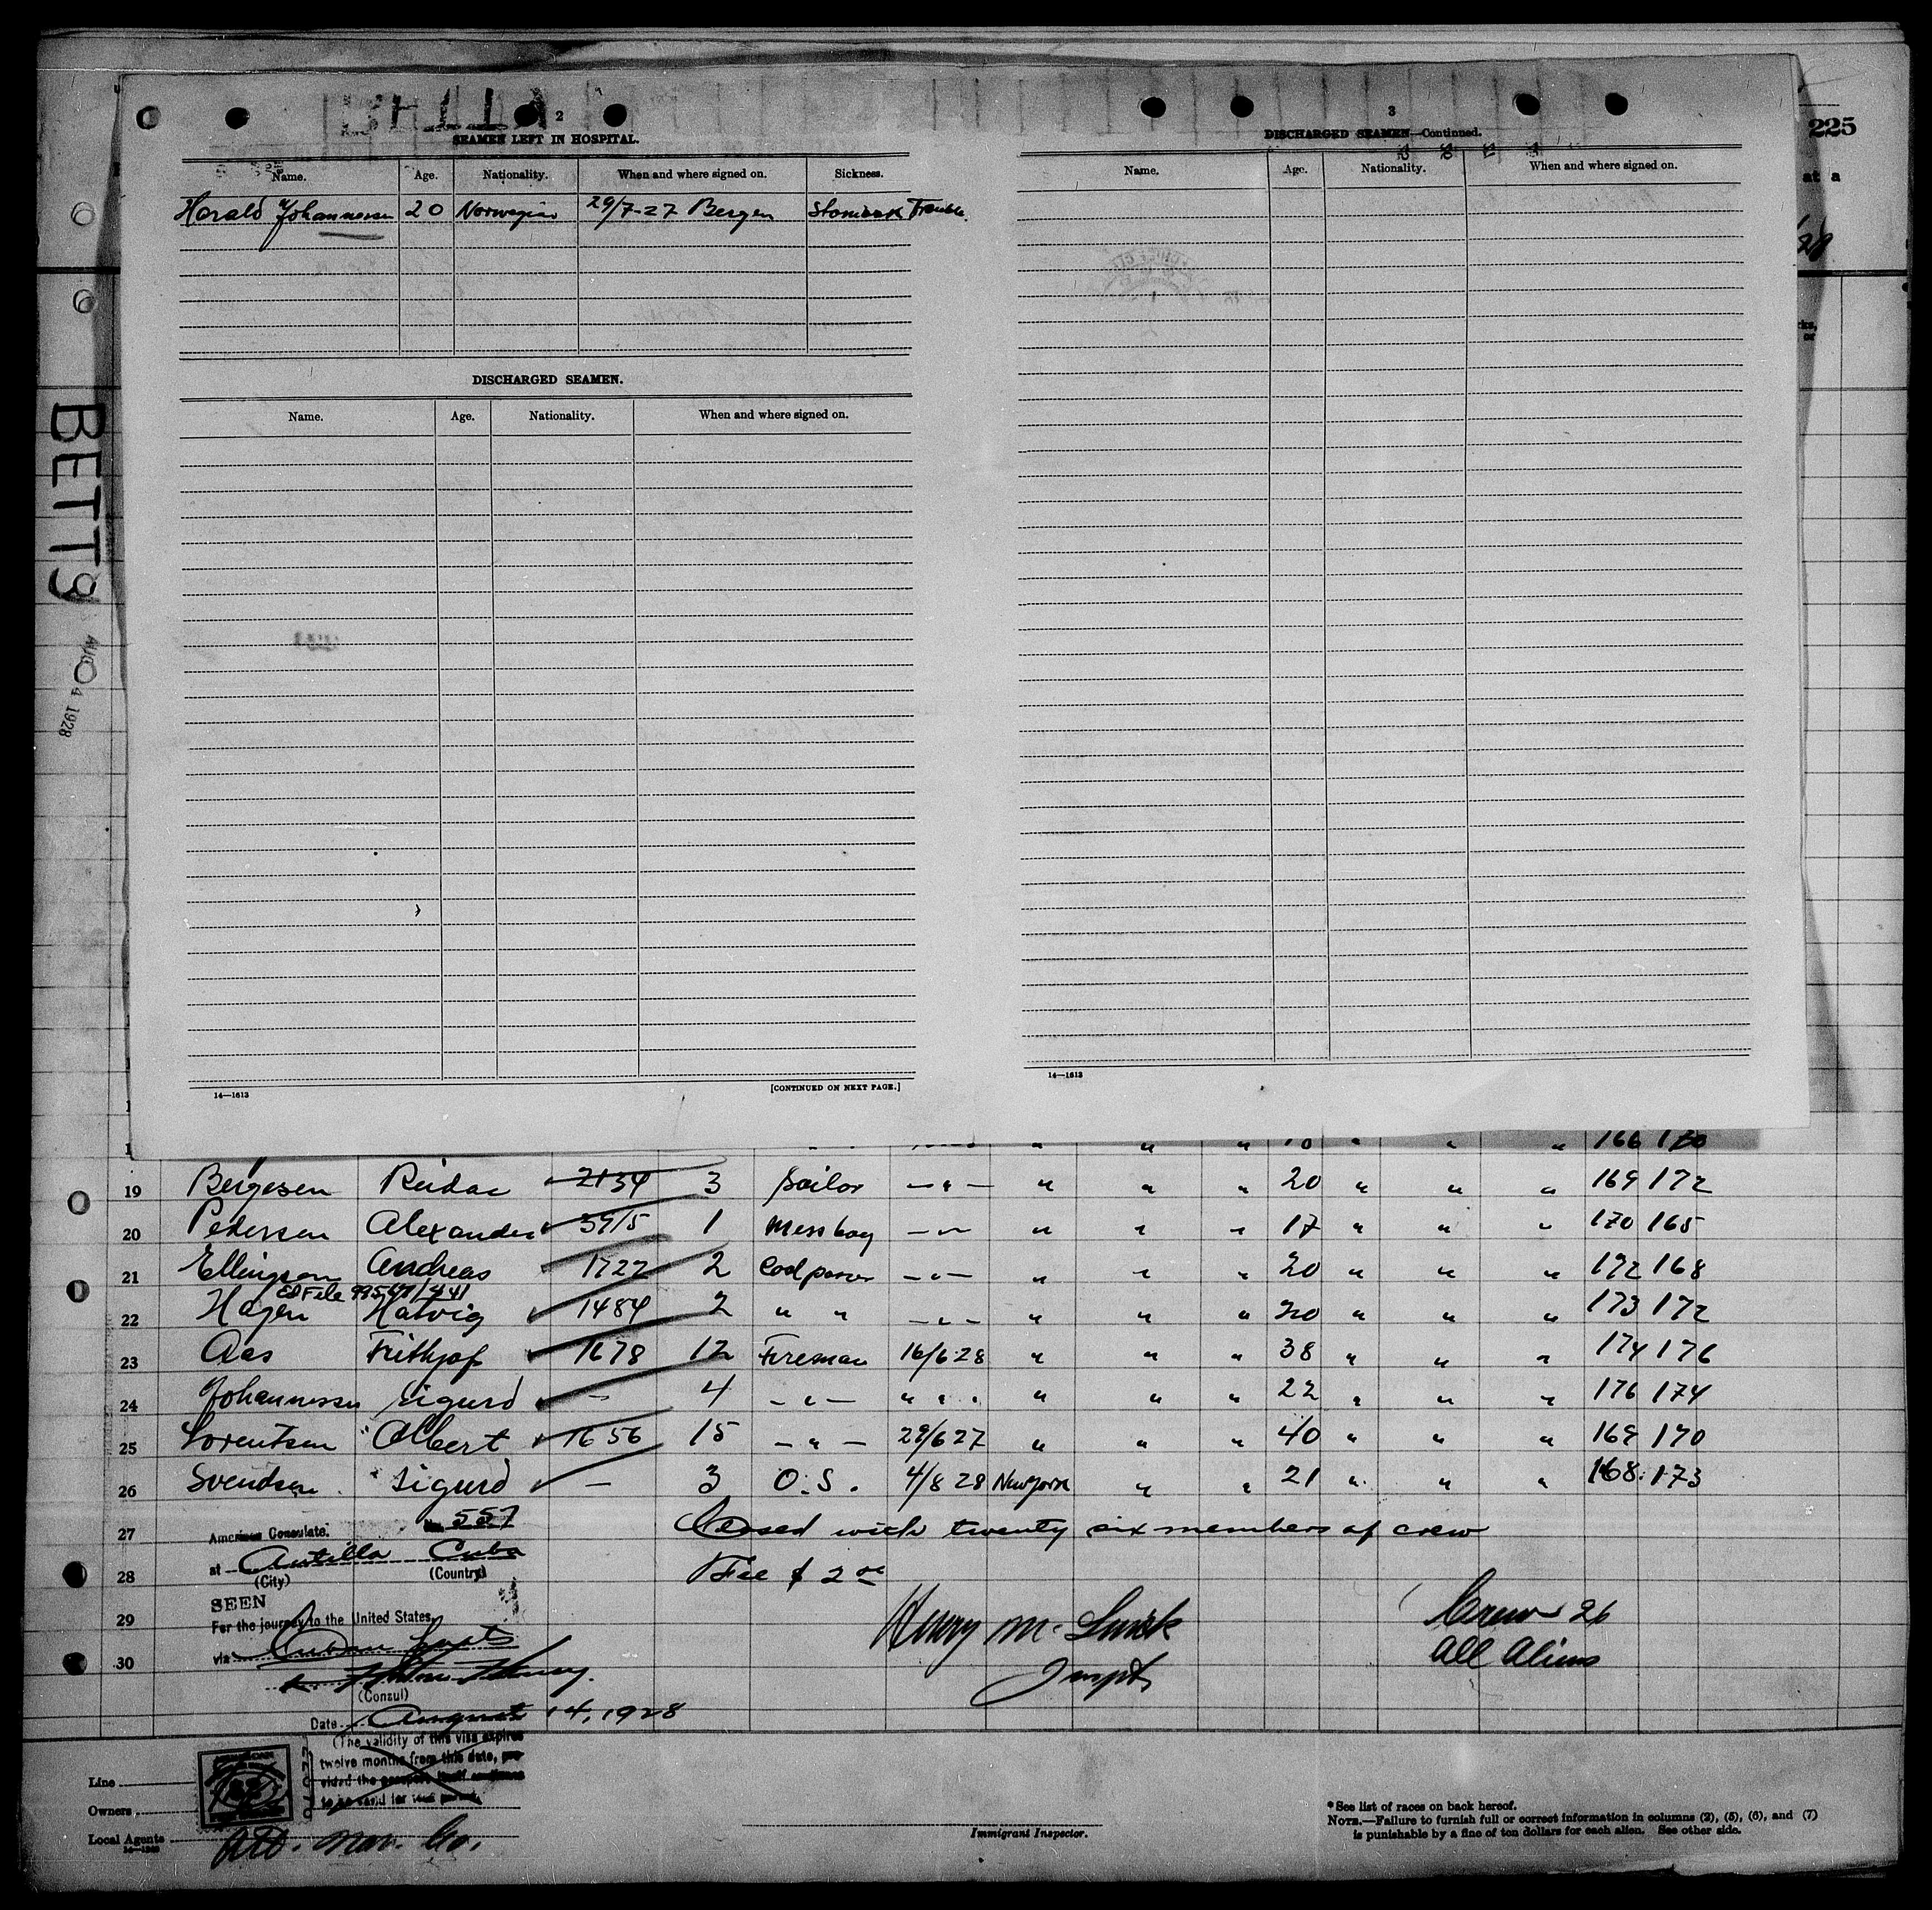 2
SEAMEN LEFT IN HOSPITAL.
Name. Age. Nationality. When and where signed on. Sickness.
Harald Johannessen 20 Norwegian 29/7-27 Bergen Stomack Trouble
DISCHARGED SEAMEN.
Name. Age. Nationality. When and where signed on.
[CONTINUED ON NEXT PAGE.]
14—1613
3
DISCHARGED SEAMEN—Continued.
Name. Age. Nationality. When and where signed on.
14—1613
225
at a
BETTY
AUG 4 1928
166
19 Bergesen Reidar 2134 3 Sailor — " — " " " 20 " " " 169 172
20 Pedersen Alexander 3915 1 Mess boy — " — " " " 17 " " " 170 165
21 Ellingsen Andreas 1722 2 Coal passer — " — " " " 20 " " " 172 168
22 Hagen Hatvig 1484 2 " " — " — " " " 20 " " " 173 172
23 Aas Frithjof 1678 12 Fireman 16/6 28 " " " 38 " " " 174 176
24 Johannessen Sigurd — 4 — " — " " " " " " 22 " " " 176 174
25 Lorentsen Albert 1656 15 — " — 29/6 27 " " " 40 " " " 169 170
26 Svendsen Sigurd — 3 O.S. 4/8 28 New York " " 21 " " " 168 173
27 Closed with twenty six members of crew
28 Fee $ 2 00
29
30
American Consulate. No. 557
at Antilla Cuba
(City) (Country)
SEEN
For the journey to the United States,
via Cuban Ports
(Consul)
Date August 14, 1928
(The validity of this visa expires
twelve months from this date, pro-
vided the passport itself continues
to be valid for that period.
Henry M.
Inspt,
Crew 26
All Aliens
Line
Owners
Local Agents
Immigrant Inspector.
* See list of races on back hereof.
NOTE.—Failure to furnish full or correct information in columns (2), (5), (6), and (7)
is punishable by a fine of ten dollars for each alien. See other side.